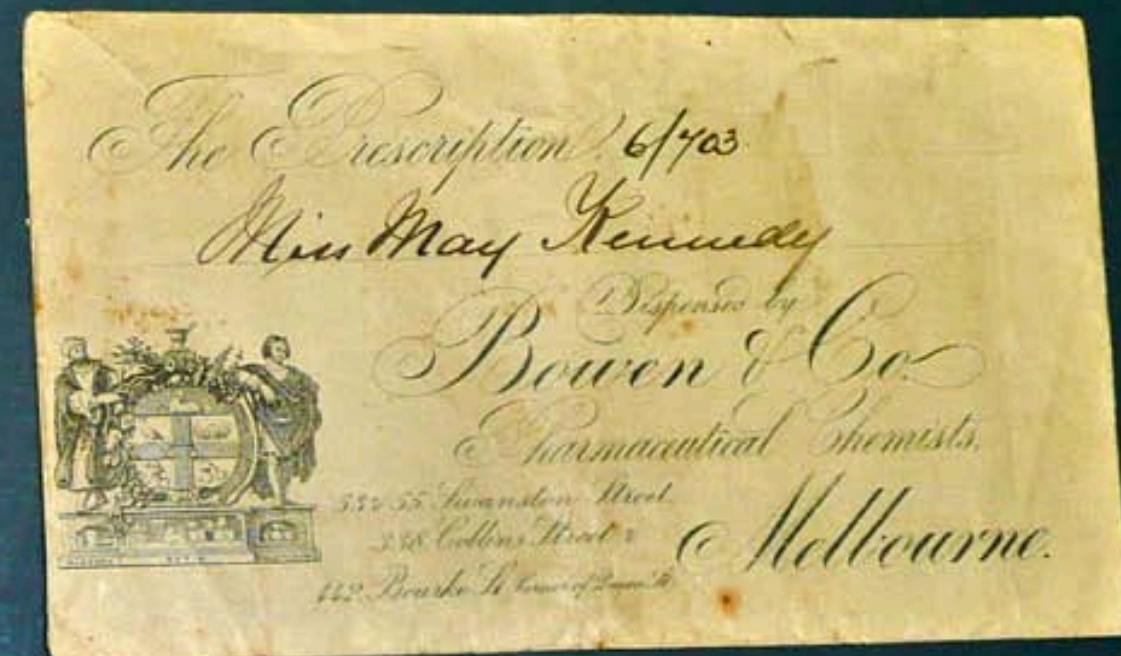 The Prescription 6/703
Miss May Kennedy
Dispensed by
Bowen & Co.
Pharmaceutical Chemists.
53 & 55 Swanston Street
Collins Street &
442 Bourke St Corner of
Melbourne.